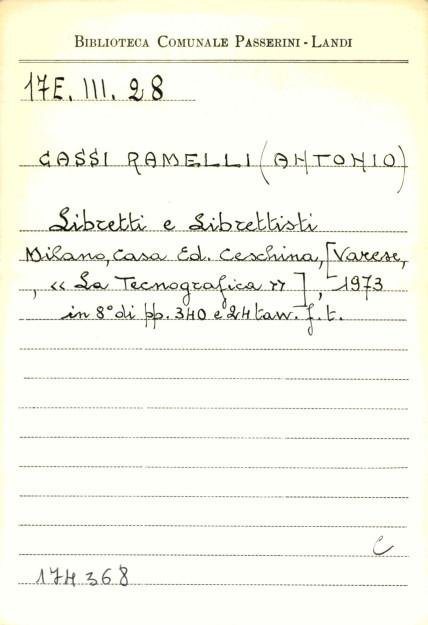 BIBLIOTECA COMUNALE PASSERINI - LANDI
17E. III. 28
CASSI RAMELLI (ANTONIO)
Libretti e Librettisti
Milano, Casa Ed. Ceschina, [Varese,
, « La Tecnografica »], 1973
in 8° di pp. 340 e 24 tav. f. t.
C
174368